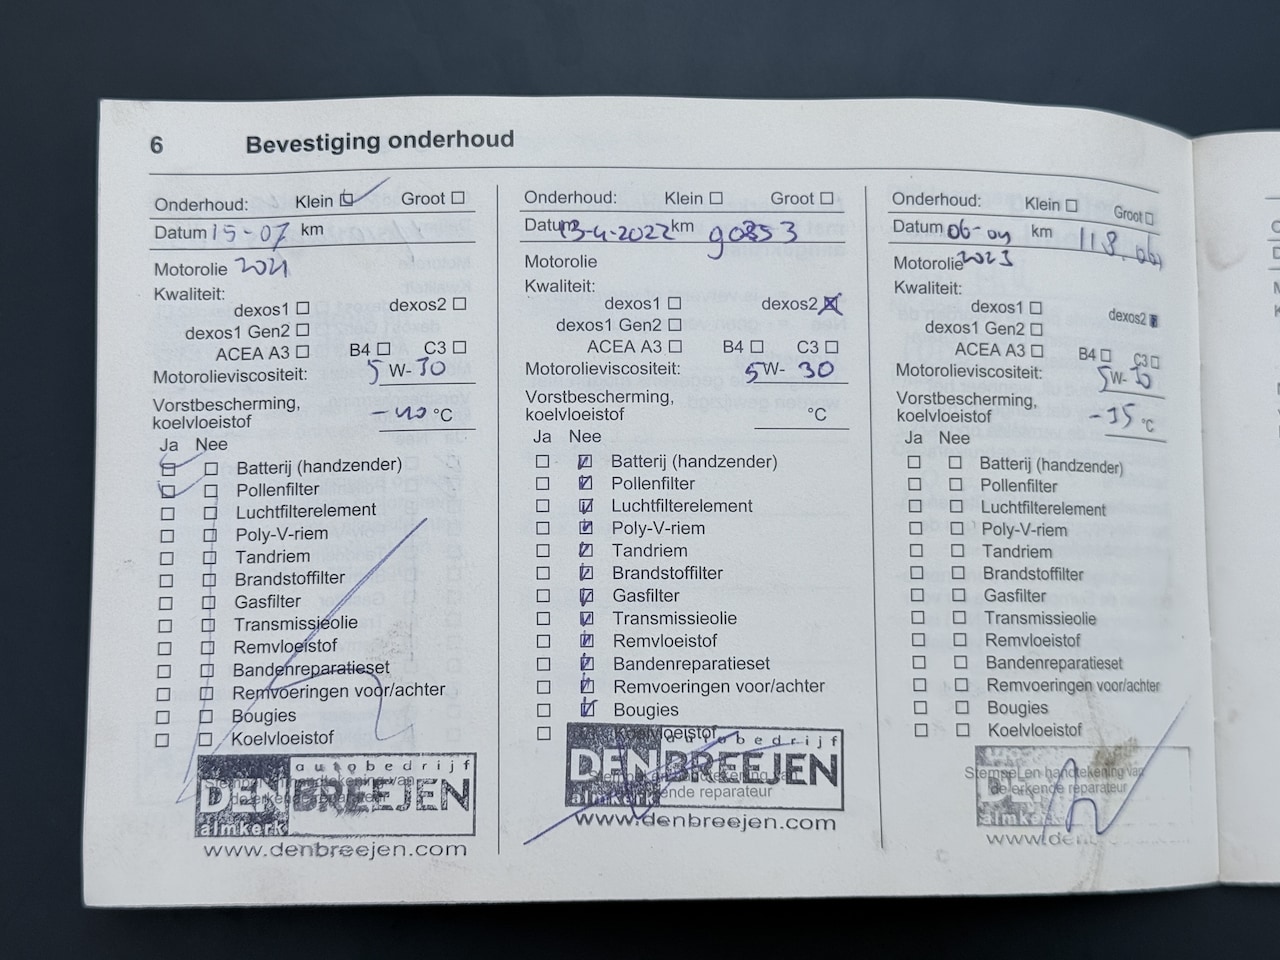 6 Bevestiging onderhoud
Onderhoud: Klein ☑ Groot ☐
Datum 15-07 km
Motorolie 2021
Kwaliteit:
dexos1 ☐ dexos2 ☐
dexos1 Gen2 ☐
ACEA A3 ☐ B4 ☐ C3 ☐
Motorolieviscositeit: 5 W- 30
Vorstbescherming,
koelvloeistof -40 °C
Ja Nee
☑ ☐ Batterij (handzender)
☑ ☐ Pollenfilter
☐ ☐ Luchtfilterelement
☐ ☐ Poly-V-riem
☐ ☐ Tandriem
☐ ☐ Brandstoffilter
☐ ☐ Gasfilter
☐ ☐ Transmissieolie
☐ ☐ Remvloeistof
☐ ☐ Bandenreparatieset
☐ ☐ Remvoeringen voor/achter
☐ ☐ Bougies
☐ ☐ Koelvloeistof
Stempel en handtekening van
de erkende reparateur
autobedrijf
DEN BREEJEN
almkerk
www.denbreejen.com
Onderhoud: Klein ☐ Groot ☐
Datum 13-4-2022 km 90853
Motorolie
Kwaliteit:
dexos1 ☐ dexos2 ☒
dexos1 Gen2 ☐
ACEA A3 ☐ B4 ☐ C3 ☐
Motorolieviscositeit: 5W- 30
Vorstbescherming,
koelvloeistof °C
Ja Nee
☐ ☑ Batterij (handzender)
☐ ☑ Pollenfilter
☐ ☑ Luchtfilterelement
☐ ☑ Poly-V-riem
☐ ☑ Tandriem
☐ ☑ Brandstoffilter
☐ ☑ Gasfilter
☐ ☑ Transmissieolie
☐ ☑ Remvloeistof
☐ ☑ Bandenreparatieset
☐ ☑ Remvoeringen voor/achter
☐ ☑ Bougies
☐ Koelvloeistof
Stempel en handtekening van
de erkende reparateur
autobedrijf
DEN BREEJEN
almkerk
www.denbreejen.com
Onderhoud: Klein ☐ Groot ☐
Datum 06-04 km
Motorolie 2023
Kwaliteit:
dexos1 ☐ dexos2 ☒
dexos1 Gen2 ☐
ACEA A3 ☐ B4 ☐ C3 ☐
Motorolieviscositeit: 5W- 30
Vorstbescherming,
koelvloeistof -35 °C
Ja Nee
☐ ☐ Batterij (handzender)
☐ ☐ Pollenfilter
☐ ☐ Luchtfilterelement
☐ ☐ Poly-V-riem
☐ ☐ Tandriem
☐ ☐ Brandstoffilter
☐ ☐ Gasfilter
☐ ☐ Transmissieolie
☐ ☐ Remvloeistof
☐ ☐ Bandenreparatieset
☐ ☐ Remvoeringen voor/achter
☐ ☐ Bougies
☐ ☐ Koelvloeistof
Stempel en handtekening van
de erkende reparateur
almkerk